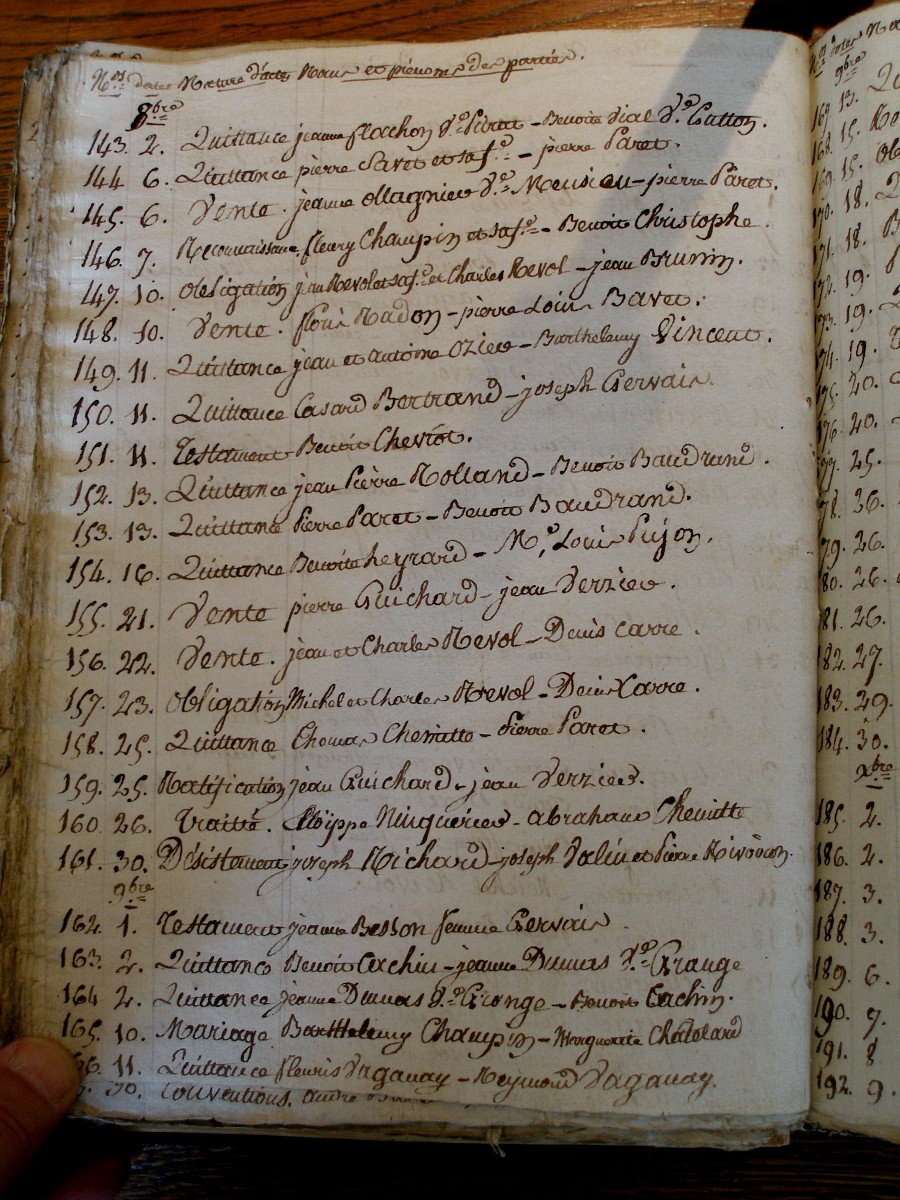 Nos dates Nature d'actes Noms et prénoms des parties.
8bre
143. 2. Quittance jeanne flachon Ve Pitrat - Benoite Vial Ve Cutton.
144 6. Quittance pierre Paret et sa fe - pierre Paret.
145. 6. Vente. jeanne ollagnier Ve Meusieu - pierre Paret.
146. 7. Reconnaissance fleury Champin et sa fe - Benoit Christophe.
147. 10. obligation jean Revol et sa fe et Charles Revol - jean Brunin.
148. 10. Vente. Nadon - pierre Louis Bavet.
149. 11. Quittance jean et antoine ozier - Barthelemy Vincent.
150. 11. Quittance Casard Bertrand - joseph Gervais.
151. 11. Testament Benoit Cheviot.
152. 13. Quittance jean Pierre Rolland - Benoit Baudrand.
153. 13. Quittance Pierre Paret - Benoit Baudrand.
154. 16. Quittance Benoite heyrard - Me Louis Pujon.
155. 21. Vente pierre Guichard - jean Verzier.
156. 22. Vente. jean et Charles Revol - Denis Carre.
157. 23. obligation Michel et Charles Revol - Denis Carre.
158. 25. Quittance Thomas - Pierre Paret.
159. 25. Ratification jean Guichard - jean Verzier.
160. 26. Traitté. - abraham
161. 30. Désistement joseph Richard - joseph Valin et Pierre
9bre
162. 1. Testament jeanne Besson femme Gervais.
163. 2. Quittance Benoit Cachin - jeanne Dumas Ve Grange
164 2. Quittance jeanne Dumas Ve Grange - Benoit Cachin.
165. 10. Mariage Barthelemy Champin - Marguerite Chatelard
66. 11. Quittance fleuris Vaganay - Reymond Vaganay.
30. Conventions. andre
9bre
167 13.
168. 15.
169. 15.
170. 18.
171. 18.
172. 19.
173. 19.
174. 19.
175. 20.
176. 20.
77. 25.
78. 26.
79. 26.
80. 26.
181. 26.
182. 27.
183. 29.
184. 30.
xbre
185. 2.
186. 2.
187. 3.
188. 3.
189. 6.
190. 7.
191. 8
192. 9.